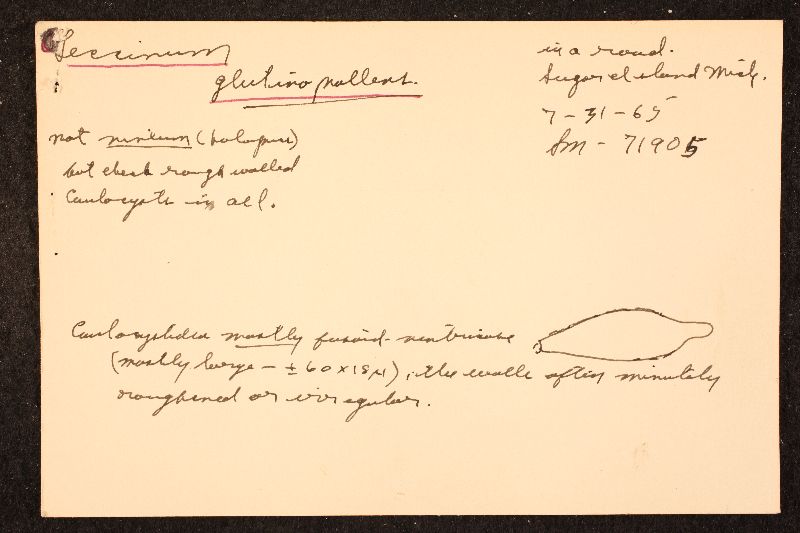 Leccinum
glutinopallens.
in a road.
Sugar Island Mich.
7-31-65
Sm - 71905
not niveum (holopus)
but check rough walled
Caulocysts in all.
Caulocystidia mostly fusoid-ventricose
(mostly large - ± 60 x 18 µ), the walls often minutely
roughened or irregular.